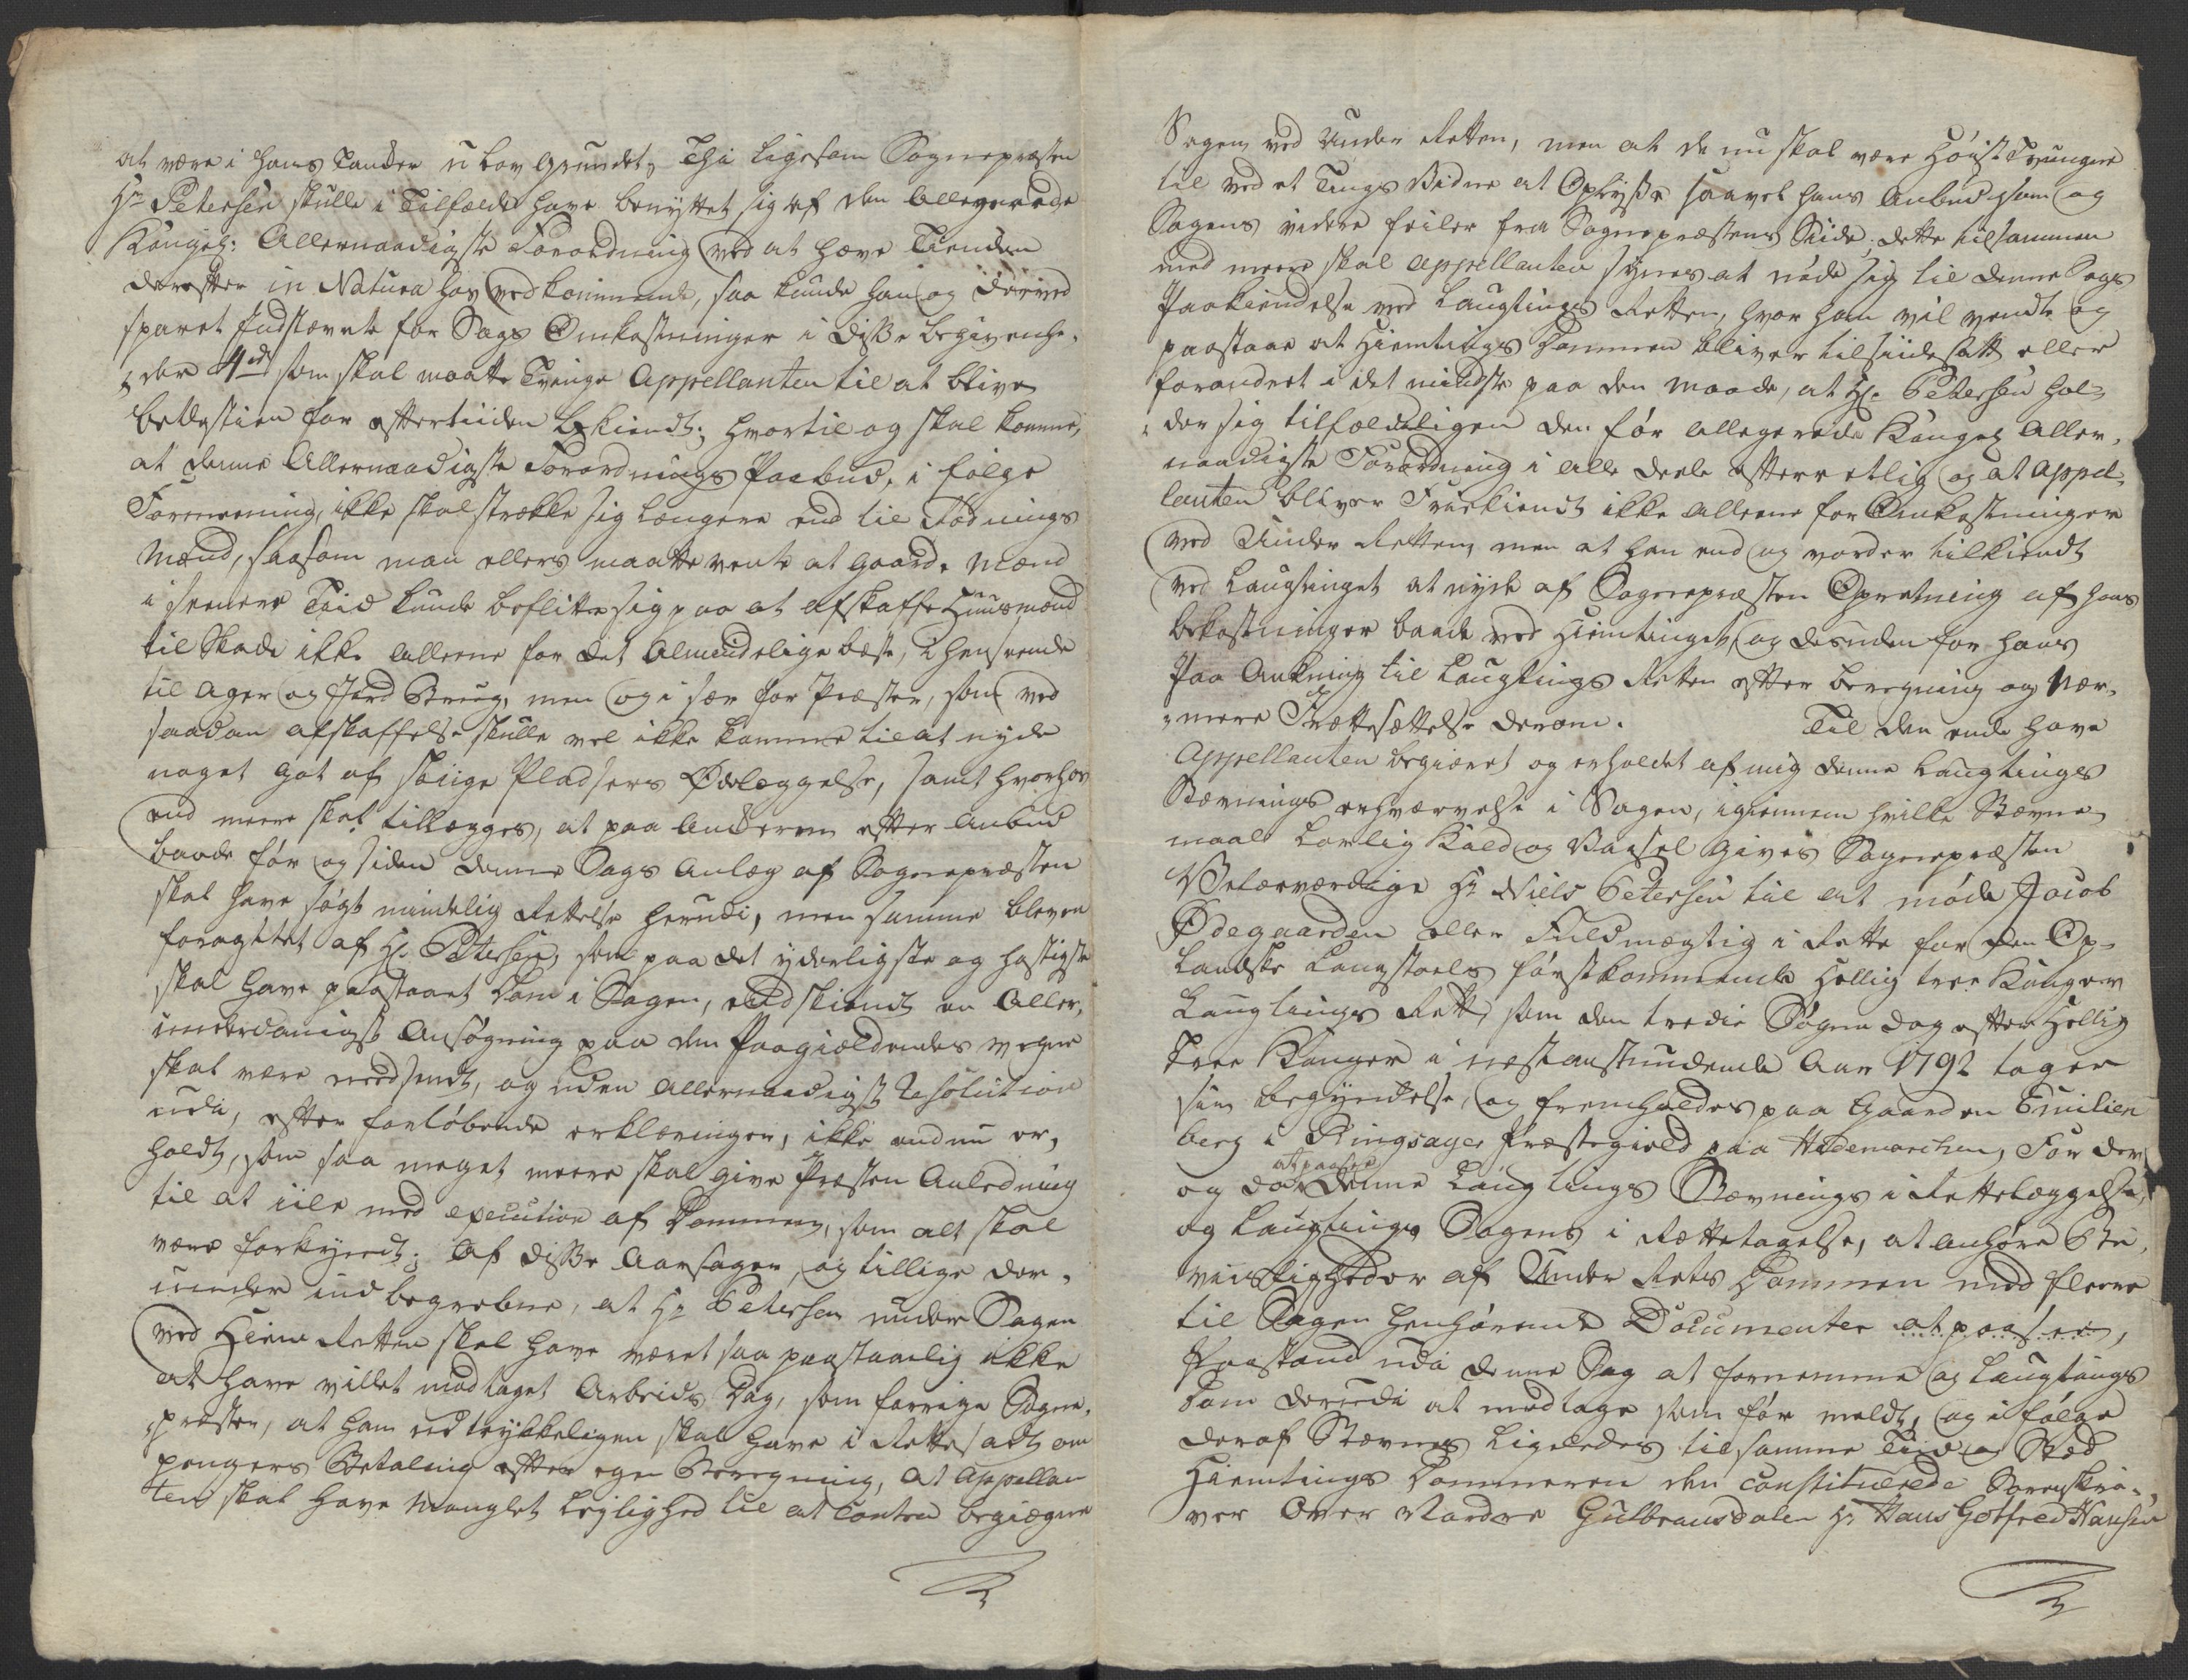 at være i hans Tanker u lov grundet, Thi ligesom Sognepræsten
Hr. Petersen skulle i Tilfælde have benyttet sig af den allegerede
Kongel: Allernaadigste Forordning ved at hæve Tienden
derefter in Natura hos vedkommende, saa kunde han og derved
sparet Indstævnte for Sags Omkostninger i disse begivenhe-
der 4de som skal maatte tvinge Appellanten til at blive
bekostnin for eftertiiden bekiendt; hvortil og skal komme,
at denne Allernaadigste Forordnings Paabud, i følge
Formeening, ikke skal strække sig længere end til Rødnings
Mænd, saasom man ellers maatte vente at gaard. Mænd
i seenere Tiid kunde beflitte sig paa at afskaffe Huusmænd
til Skade ikke alleene for det almindelige bæste, i henseende
til ager og Jord Brug, men og i sær for Præsten, som ved
saadan afskaffelse skulle vel ikke komme til at nyde
noget got af slige Pladsers Ødelæggelse, samt hvorhos
end meere skal tillægges, at paa Anderen efter Anbud
baade før og siden denne Sags anlæg af Sognepræsten
skal have søgt mindelig Rettelse herudi, men samme bleven
foragtet af Hr. Petersen, som paa det yderligste og hastigste
skal have paastaaet Dom i Sagen, endskiønt en Aller-
underdanigst Ansøgning paa den Paagieldendes vegne
skal være nedsendt, og uden allernaadigst Resolution
udi, efter forløbende erklæringer, ikke endnu er,
holdt, som saa meget meere skal give Præsten Anledning
til at iile med execution af Dommen, som alt skal
være forkyndt; Af disse Aarsager, og tillige der-
under indbegrebne, at Hr. Petersen under Sagen
ved Hiem Retten skal have været saa paastaaelig ikke
at have villet modtaget Arbeids Dag, som forrige Sogne-
præster, at ham udtrykkeligen skal have i Rettesadt om
penges Betaling efter egen Beregning, at Appellan
ten skal have manglet leylighed til at contra begiegne
Sagen ved Under Retten, men at de nu skal være høist Tvungne
til ved et Tings Vidne at Oplyse saavel hans Anbud som og
Sagens videre feiler fra Sognepræstens Siide; dette tilsammen
med meere skal appellanten synes at nøde sig til denne Sags
Paakiendelse ved Laugtings Retten, hvor han vil vendte og
paastaae at Hiemtings Dommen bliver tilsiidesatt eller
forandret i det mindste paa den maade, at Hr. Petersen hol-
der sig tilfældeligen den før allegerede Kongel: Aller-
naadigste Forordning i alle deele efterrettelig og at appel-
lanten bliver Friekiendt ikke alleene for Omkostninger
ved Under Retten, men at han end og vorder tilkiendt
ved Laugtinget at nyde af Sognepræsten Opretning af hans
bekostninger baade ved Hiemtinget, og desuden for hans
Paa Ankning til Laugtings Retten efter beregning og Nær-
mere I Rettesættelse derom. Til den ende have
Appellanten begiæret og erholdet af mig denne Laugtings
Stævnings erhværvelse i Sagen, igiennem hvilke Stævne
maal Lovlig Kald og Varsel gives Sognepræsten
Velærværdige Hr. Niels Petersen til at møde Jacob
Ødegaarden eller Fuldmægtig i Rette for den Op-
landske Laugstoels førstkommende Hellig tree Konger
Laugtings Rett, som den tredie Søgne dag efter Hellig
Tree Konger i næstanstundende Aar 1792 tager
sin begyndelse, og fremholdes paa Gaarden Emilien
berg i Ringsager Præstegield paa Hedemarchen, For der
og da at paasee denne Laugtings Stævnings i Rettelæggelse,
og Laugtings Sagens i Rættetagelse, at anhøre Be-
viisligheder af Under Rets Dommen med fleere
til Sagen henhørende Documenter at paasee,
Paastand udi denne Sag at fornemme og Laugtings
Dom derudi at modtage som før meldt, og i følge
deraf Stævnes ligeledes til samme Tiid og Stæd
Hiemtings Dommeren den constituerede Sorenskri-
ver Over Nordre Gulbransdalen Hr. Hans Gotfred Hansen